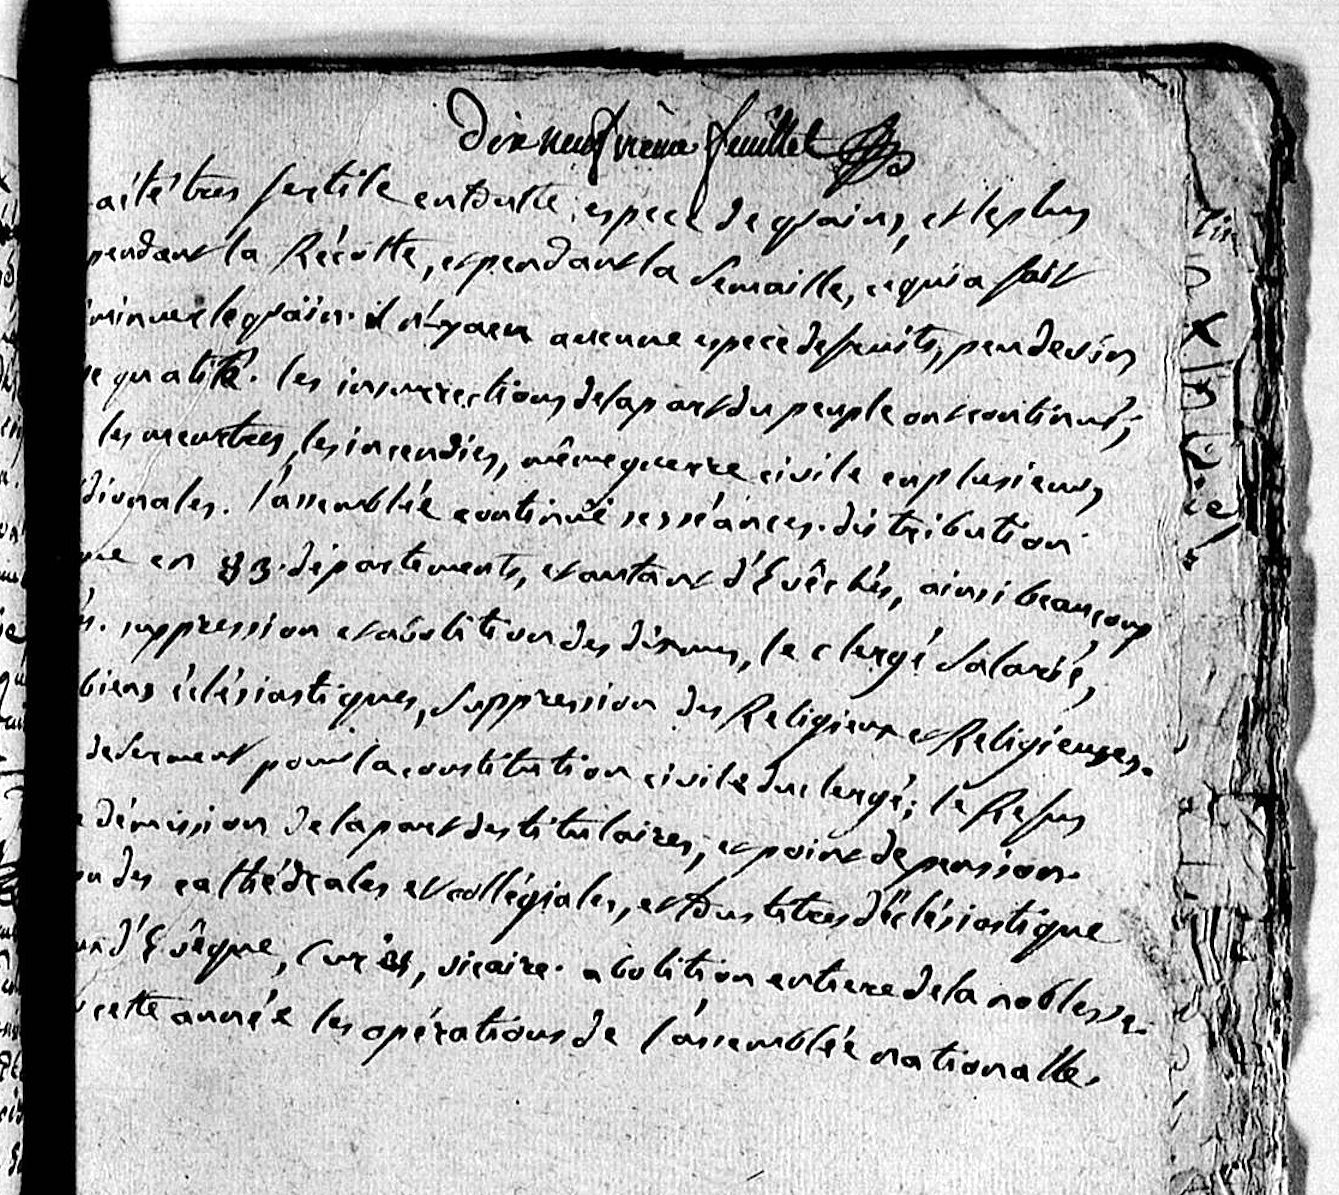 Dix neufvieme feuillet
a été tres fertile en toutte espece de grains, et les plus
pendant la Récolte, et pendant la Semaille, ce qui a fait
iminuer le grain. il n'y a eu aucune espece de fruits, peu de vin
e qualité. les insurrections de la part du peuple ont continué;
les meurtres, les incendies, même guerre civile en plusieurs
dionales. l'assemblée continué ses séances. distribution
me en 83. départements, et autant d'Evêchés, ainsi beaucoup
s. suppression et abolition des dixmes, le clergé Salarié,
biens éclésiastiques, Suppression des Religieux et Religieuses.
de serment pour la constitution civile du clergé; le Refus
e démission de la part des titulaires, et point de pension.
on des cathédrales et collégiales, et tous titres d'éclésiastique
d'Evêque, Curés, vicaire. abolition entiere de la noblesse.
cette année les opérations de l'assemblée nationalle.